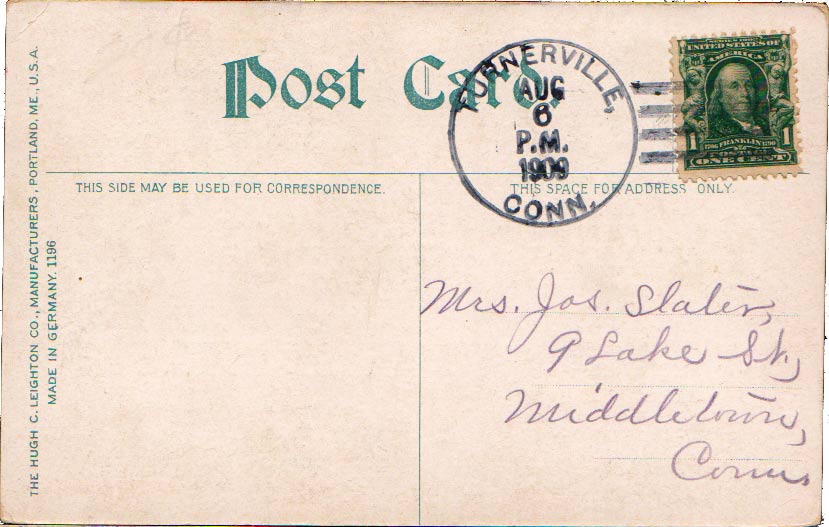 Post Card.
TURNERVILLE,
AUG
6
P.M.
1909
CONN.
SERIES 1902
UNITED STATES OF
AMERICA
1 1
1706 FRANKLIN 1790
POSTAGE
ONE CENT
THIS SIDE MAY BE USED FOR CORRESPONDENCE.
THIS SPACE FOR ADDRESS ONLY.
THE HUGH C. LEIGHTON CO., MANUFACTURERS, PORTLAND, ME., U.S.A.
MADE IN GERMANY. 1196
Mrs. Jos. Slater,
9 Lake St.,
Middletown,
Conn.